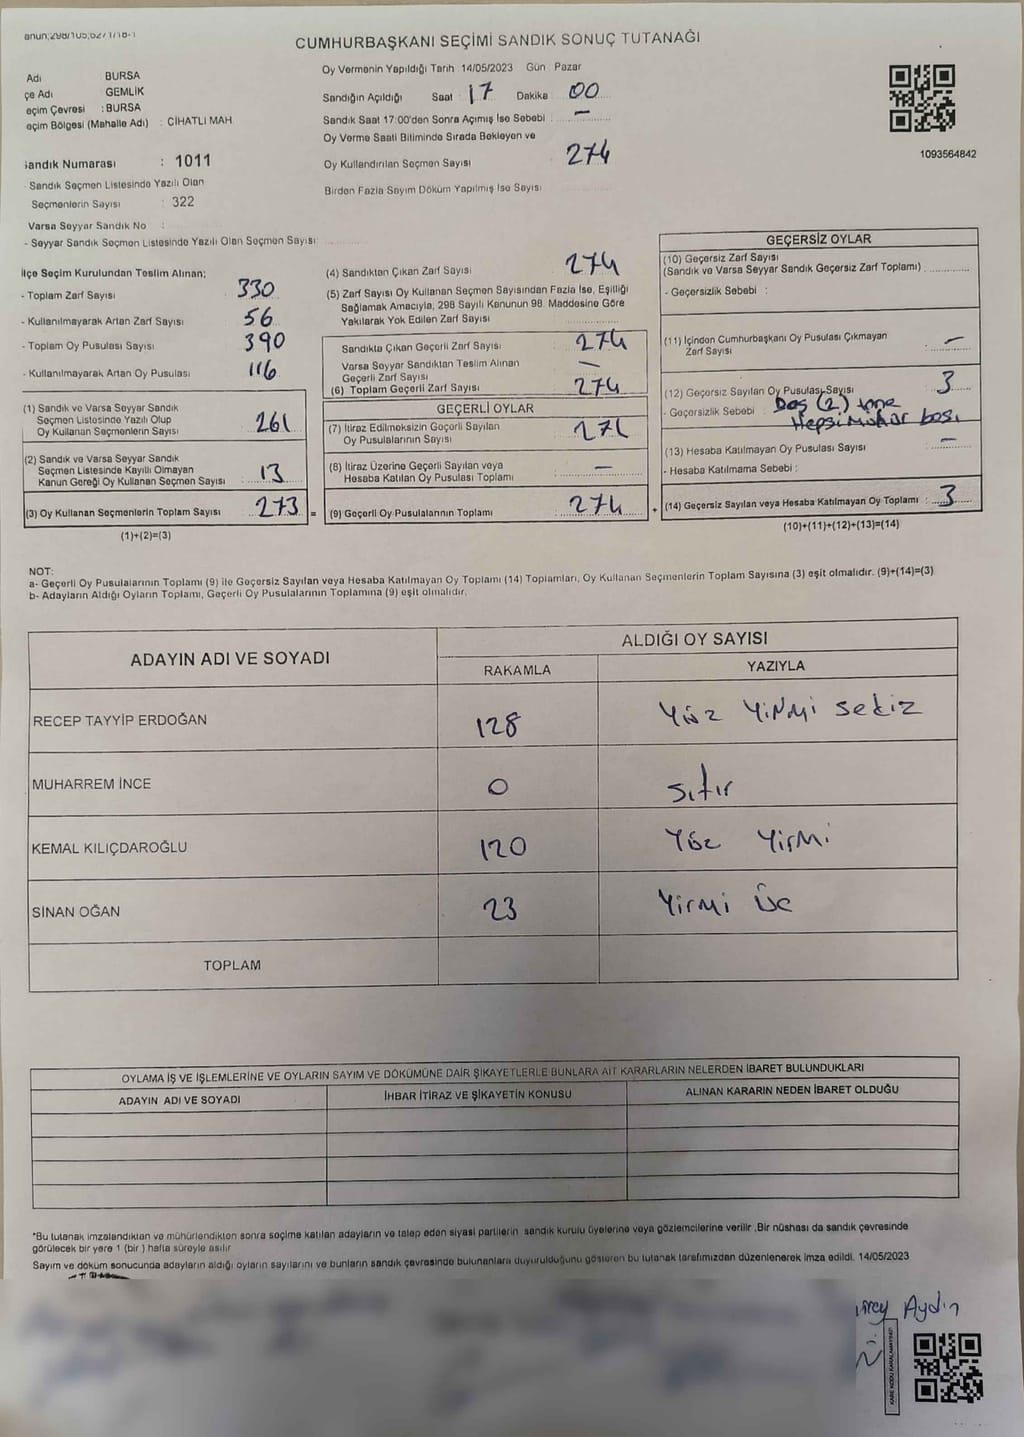 CUMHURBAŞKANI SEÇİMİ SANDIK SONUÇ TUTANAĞI
Adı BURSA
çe Adı GEMLİK
eçim Çevresi : BURSA
eçim Bölgesi (Mahalle Adı) : CİHATLI MAH.
Oy Vermenin Yapıldığı Tarih 14/05/2023 Gün Pazar
Sandığın Açıldığı Saat 17 Dakika 00
Sandık Saat 17:00'den Sonra Açımış İse Sebebi : —
Oy Verme Saati Bitiminde Sırada Bekleyen ve
Oy Kullandırılan Seçmen Sayısı 274
Birden Fazla Sayım Döküm Yapılmış İse Sayısı
1093564842
Sandık Numarası : 1011
- Sandık Seçmen Listesinde Yazılı Olan
Seçmenlerin Sayısı : 322
Varsa Seyyar Sandık No :
- Seyyar Sandık Seçmen Listesinde Yazılı Olan Seçmen Sayısı:
İlçe Seçim Kurulundan Teslim Alınan;
- Toplam Zarf Sayısı 330
- Kullanılmayarak Artan Zarf Sayısı 56
- Toplam Oy Pusulası Sayısı 390
- Kullanılmayarak Artan Oy Pusulası 116
(1) Sandık ve Varsa Seyyar Sandık
Seçmen Listesinde Yazılı Olup
Oy Kullanan Seçmenlerin Sayısı 261
(2) Sandık ve Varsa Seyyar Sandık
Seçmen Listesinde Kayıllı Olmayan
Kanun Gereği Oy Kullanan Seçmen Sayısı 13
(3) Oy Kullanan Seçmenlerin Toplam Sayısı 273 =
(1)+(2)=(3)
(4) Sandıktan Çıkan Zarf Sayısı 274
(5) Zarf Sayısı Oy Kullanan Seçmen Sayısından Fazla İse, Eşitliği
Sağlamak Amacıyla, 298 Sayılı Kanunun 98. Maddesine Göre
Yakılarak Yok Edilen Zarf Sayısı
Sandıkta Çıkan Geçerli Zarf Sayısı 274
Varsa Seyyar Sandıktan Teslim Alınan
Geçerli Zarf Sayısı —
(6) Toplam Geçerli Zarf Sayısı 274
GEÇERLİ OYLAR
(7) İtiraz Edilmeksizin Geçerli Sayılan
Oy Pusulalarının Sayısı 271
(8) İtiraz Üzerine Geçerli Sayılan veya
Hesaba Katılan Oy Pusulası Toplamı —
(9) Geçerli Oy Pusulalarının Toplamı 274 +
GEÇERSİZ OYLAR
(10) Geçersiz Zarf Sayısı
(Sandık ve Varsa Seyyar Sandık Geçersiz Zarf Toplamı) :
- Geçersizlik Sebebi :
(11) İçinden Cumhurbaşkanı Oy Pusulası Çıkmayan
Zarf Sayısı : —
(12) Geçersiz Sayılan Oy Pusulası Sayısı 3
- Geçersizlik Sebebi : (2)
(13) Hesaba Katılmayan Oy Pusulası Sayısı —
- Hesaba Katılmama Sebebi :
(14) Geçersiz Sayılan veya Hesaba Katılmayan Oy Toplamı : 3
(10)+(11)+(12)+(13)=(14)
NOT:
a- Geçerli Oy Pusulalarının Toplamı (9) ile Geçersiz Sayılan veya Hesaba Katılmayan Oy Toplamı (14) Toplamları, Oy Kullanan Seçmenlerin Toplam Sayısına (3) eşit olmalıdır. (9)+(14)=(3)
b- Adayların Aldığı Oyların Toplamı, Geçerli Oy Pusulalarının Toplamına (9) eşit olmalıdır.
ADAYIN ADI VE SOYADI ALDIĞI OY SAYISI
RAKAMLA YAZIYLA
RECEP TAYYİP ERDOĞAN 128 Yüz Yirmi sekiz
MUHARREM İNCE 0 sıfır
KEMAL KILIÇDAROĞLU 120 Yüz Yirmi
SİNAN OĞAN 23 Yirmi üç
TOPLAM
OYLAMA İŞ VE İŞLEMLERİNE VE OYLARIN SAYIM VE DÖKÜMÜNE DAİR ŞİKAYETLERLE BUNLARA AİT KARARLARIN NELERDEN İBARET BULUNDUKLARI
ADAYIN ADI VE SOYADI İHBAR İTİRAZ VE ŞİKAYETİN KONUSU ALINAN KARARIN NEDEN İBARET OLDUĞU
*Bu tutanak imzalandıktan ve mühürlendikten sonra seçime katılan adayların ve talep eden siyasi partilerin sandık kurulu üyelerine veya gözlemcilerine verilir .Bir nüshası da sandık çevresinde
görülecek bir yere 1 (bir ) hafta süreyle asılır
Sayım ve döküm sonucunda adayların aldığı oyların sayılarını ve bunların sandık çevresinde bulunanlara duyurulduğunu gösteren bu tutanak tarafımızdan düzenlenerek imza edildi. 14/05/2023
Aydın
KARE KODU KARALAMAYINIZ!